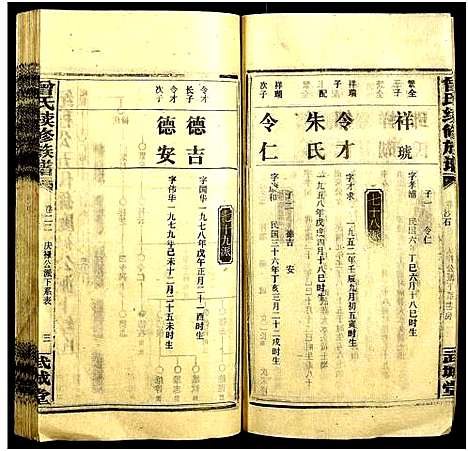 曾氏续修族谱
武城堂
繁全
王子
祥琥
字孝浦 民国六年丁巳六月十八巳时生
子一 令仁
七十八派
祥瑞
子
令才
字才求 一九五二年壬辰九月初五寅时生
配
朱氏
一九五八年戊戌四月十八巳时生
子二 德吉 安
祥琥
次子
令仁
民国三十六年丁亥三月二十二戌时生
七十九派
令才
长子
德吉
字国华 一九七八年戊午正月二十一酉时生
令才
次子
德安
字伟华 一九七九年己未十二月二十五未时生
曾氏续修族谱
卷二二 庆禄公派下系表
三
武城堂